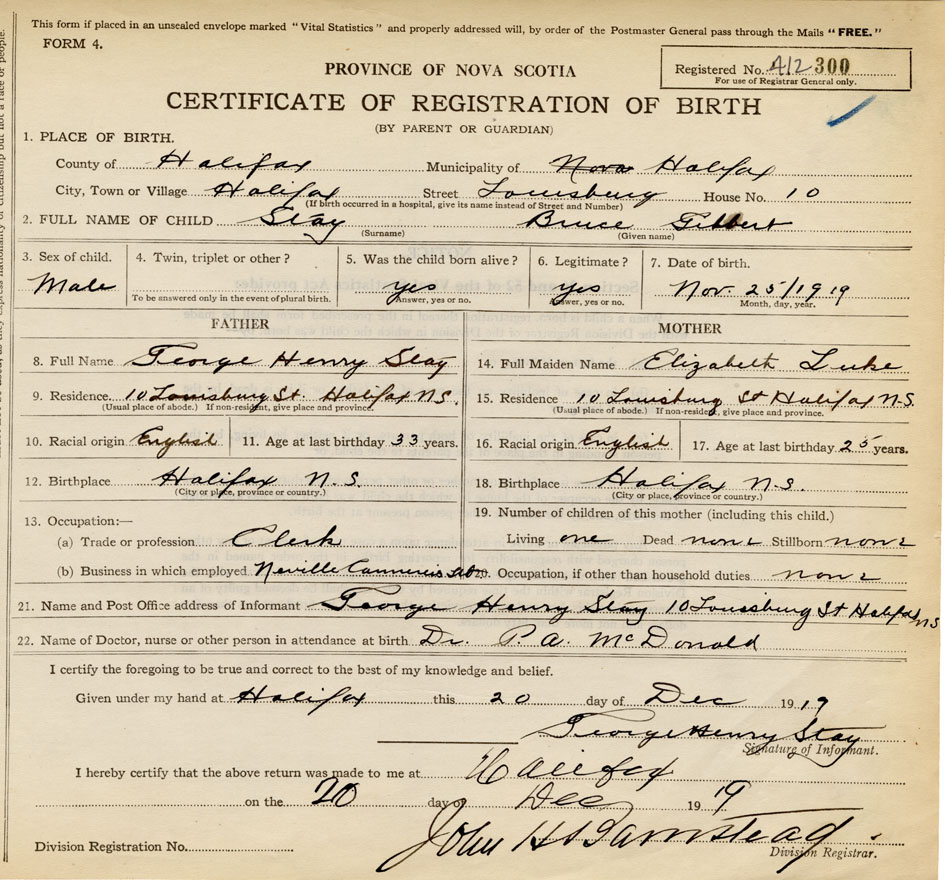 This form if placed in an unsealed envelope marked "Vital Statistics" and properly addressed will, by order of the Postmaster General pass through the Mails "FREE."
FORM 4.
Registered No. 412 300
For use of Registrar General only.
PROVINCE OF NOVA SCOTIA
CERTIFICATE OF REGISTRATION OF BIRTH
(BY PARENT OR GUARDIAN)
1. PLACE OF BIRTH.
County of Halifax Municipality of Nova Halifax
City, Town or Village Halifax Street Louisburg House No. 10
(If birth occurred in a hospital, give its name instead of Street and Number)
2. FULL NAME OF CHILD Slay Bruce Gilbert
(Surname) (Given name)
3. Sex of child. 4. Twin, triplet or other? 5. Was the child born alive? 6. Legitimate? 7. Date of birth.
Male yes yes Nov. 25/1919
To be answered only in the event of plural birth. Answer, yes or no. Answer, yes or no. Month, day, year.
FATHER MOTHER
8. Full Name George Henry Slay 14. Full Maiden Name Elizabeth Luke
9. Residence. 10 Louisburg St. Halifax N.S. 15. Residence 10 Louisburg St Halifax N.S.
(Usual place of abode.) If non-resident, give place and province. (Usual place of abode.) If non-resident, give place and province.
10. Racial origin English 11. Age at last birthday 33 years. 16. Racial origin English 17. Age at last birthday 25 years.
12. Birthplace Halifax N.S. 18. Birthplace Halifax N.S.
(City or place, province or country.) (City or place, province or country.)
13. Occupation:— 19. Number of children of this mother (including this child.)
(a) Trade or profession Clerk Living one Dead none Stillborn none
(b) Business in which employed Neville Canneries Ltd 20. Occupation, if other than household duties. none
21. Name and Post Office address of Informant George Henry Slay 10 Louisburg St Halifax NS
22. Name of Doctor, nurse or other person in attendance at birth Dr. P. A. McDonald
I certify the foregoing to be true and correct to the best of my knowledge and belief.
Given under my hand at Halifax this 20 day of Dec 1919
George Henry Slay
Signature of Informant.
I hereby certify that the above return was made to me at Halifax
on the 20 day of Dec 1919
John H Barnstead
Division Registration No. Division Registrar.